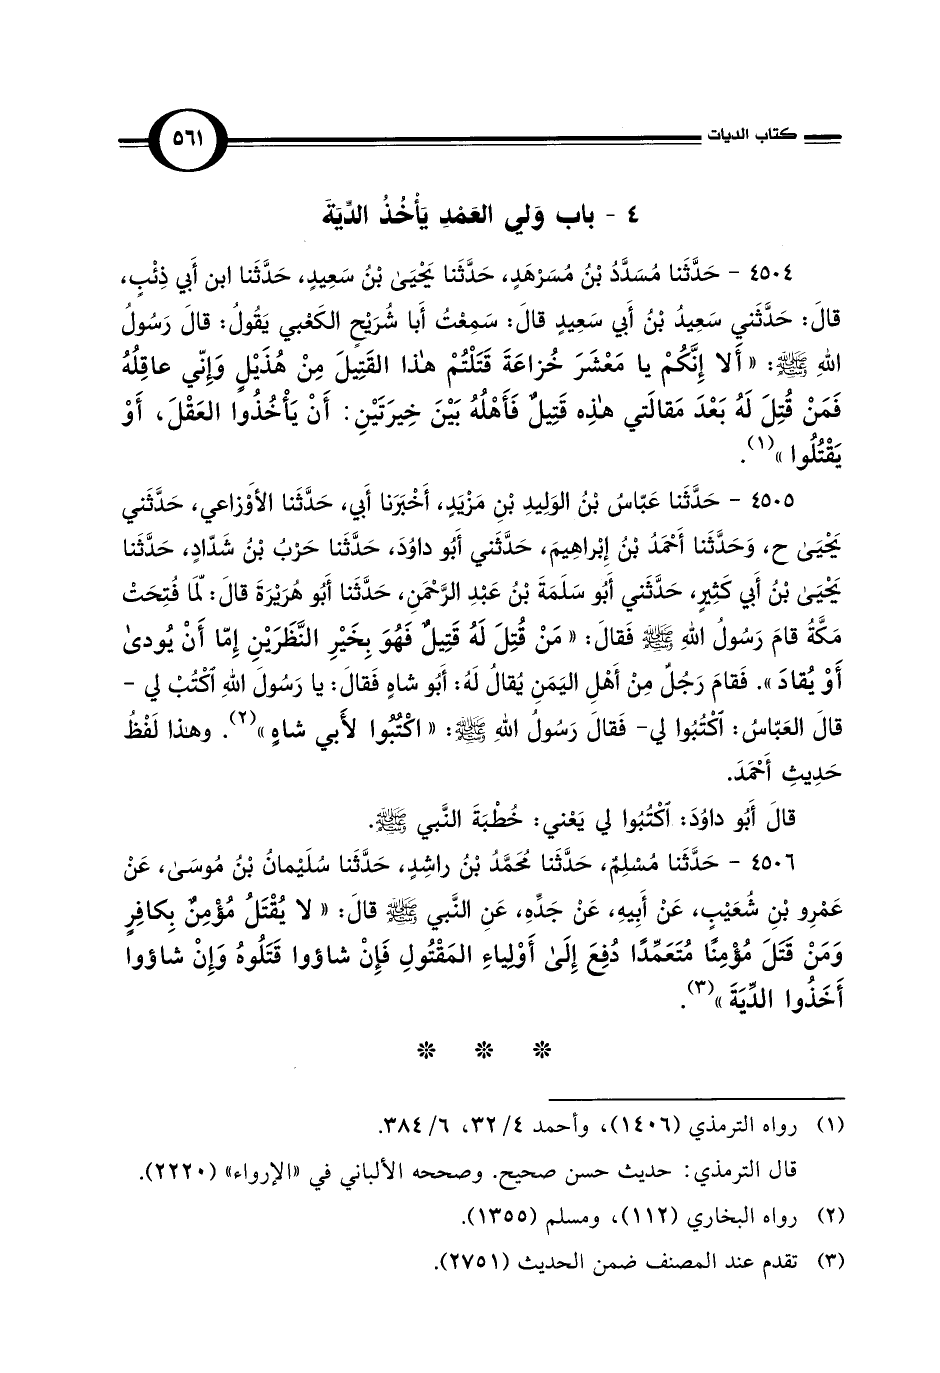 كتاب الديات ٥٦١
٤ - باب وَلي العَمْدِ يَأْخُذُ الدِّيَةَ
٤٥٠٤ - حَدَّثَنا مُسَدَّدُ بْنُ مُسَرْهَدٍ، حَدَّثَنا يَحْيَىٰ بْنُ سَعِيدٍ، حَدَّثَنا ابن أَبي ذِئْبٍ،
قالَ: حَدَّثَني سَعِيدُ بْنُ أَبي سَعِيدٍ قالَ: سَمِعْتُ أَبا شُرَيْحٍ الكَعْبي يَقُولُ: قالَ رَسُولُ
اللهِ ﷺ: « أَلا إِنَّكُمْ يا مَعْشَرَ خُزاعَةَ قَتَلْتُمْ هٰذا القَتِيلَ مِنْ هُذَيْلٍ وَإِنّي عاقِلُهُ
فَمَنْ قُتِلَ لَهُ بَعْدَ مَقالَتي هٰذِه قَتِيلٌ فَأَهْلُهُ بَيْنَ خِيرَتَيْنِ: أَنْ يَأْخُذُوا العَقْلَ، أَوْ
يَقْتُلُوا »(١).
٤٥٠٥ - حَدَّثَنا عَبّاسُ بْنُ الوَلِيدِ بْنِ مَزْيَدٍ، أَخْبَرَنا أَبي، حَدَّثَنا الأَوْزاعي، حَدَّثَني
يَحْيَىٰ ح، وَحَدَّثَنا أَحْمَدُ بْنُ إِبْراهِيمَ، حَدَّثَني أَبُو داوُدَ، حَدَّثَنا حَرْبُ بْنُ شَدّادٍ، حَدَّثَنا
يَحْيَىٰ بْنُ أَبي كَثِيرٍ، حَدَّثَني أَبُو سَلَمَةَ بْنُ عَبْدِ الرَّحْمَنِ، حَدَّثَنا أَبُو هُرَيْرَةَ قالَ: لَمّا فُتِحَتْ
مَكَّةُ قامَ رَسُولُ اللهِ ﷺ فَقالَ: « مَنْ قُتِلَ لَهُ قَتِيلٌ فَهُوَ بِخَيْرِ النَّظَرَيْنِ إِمّا أَنْ يُودىٰ
أَوْ يُقادَ ». فَقامَ رَجُلٌ مِنْ أَهْلِ اليَمَنِ يُقالُ لَهُ: أَبُو شاهٍ فَقالَ: يا رَسُولَ اللهِ ٱكْتُبْ لي -
قالَ العَبّاسُ: ٱكْتُبُوا لي- فَقالَ رَسُولُ اللهِ ﷺ: « اكْتُبُوا لأَبي شاهٍ »(٢). وهٰذا لَفْظُ
حَدِيثِ أَحْمَدَ.
قالَ أَبُو داوُدَ: ٱكْتُبُوا لي يَعْني: خُطْبَةَ النَّبي ﷺ.
٤٥٠٦ - حَدَّثَنا مُسْلِمٌ، حَدَّثَنا مُحَمَّدُ بْنُ راشِدٍ، حَدَّثَنا سُلَيْمانُ بْنُ مُوسَىٰ، عَنْ
عَمْرِو بْنِ شُعَيْبٍ، عَنْ أَبِيهِ، عَنْ جَدِّهِ، عَنِ النَّبي ﷺ قالَ: « لا يُقْتَلُ مُؤْمِنٌ بِكافِرٍ
وَمَنْ قَتَلَ مُؤْمِنًا مُتَعَمِّدًا دُفِعَ إِلَىٰ أَوْلِياءِ المَقْتُولِ فَإِنْ شاؤوا قَتَلُوهُ وَإِنْ شاؤوا
أَخَذُوا الدِّيَةَ »(٣).
* * *
(١) رواه الترمذي (١٤٠٦)، وأحمد ٤/ ٣٢، ٦/ ٣٨٤.
قال الترمذي: حديث حسن صحيح. وصححه الألباني في «الإرواء» (٢٢٢٠).
(٢) رواه البخاري (١١٢)، ومسلم (١٣٥٥).
(٣) تقدم عند المصنف ضمن الحديث (٢٧٥١).